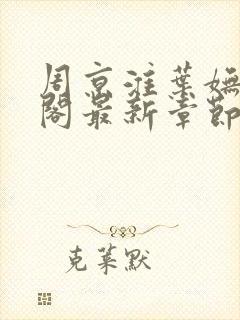 周京淮葉嫵
閣最新章節
克萊默